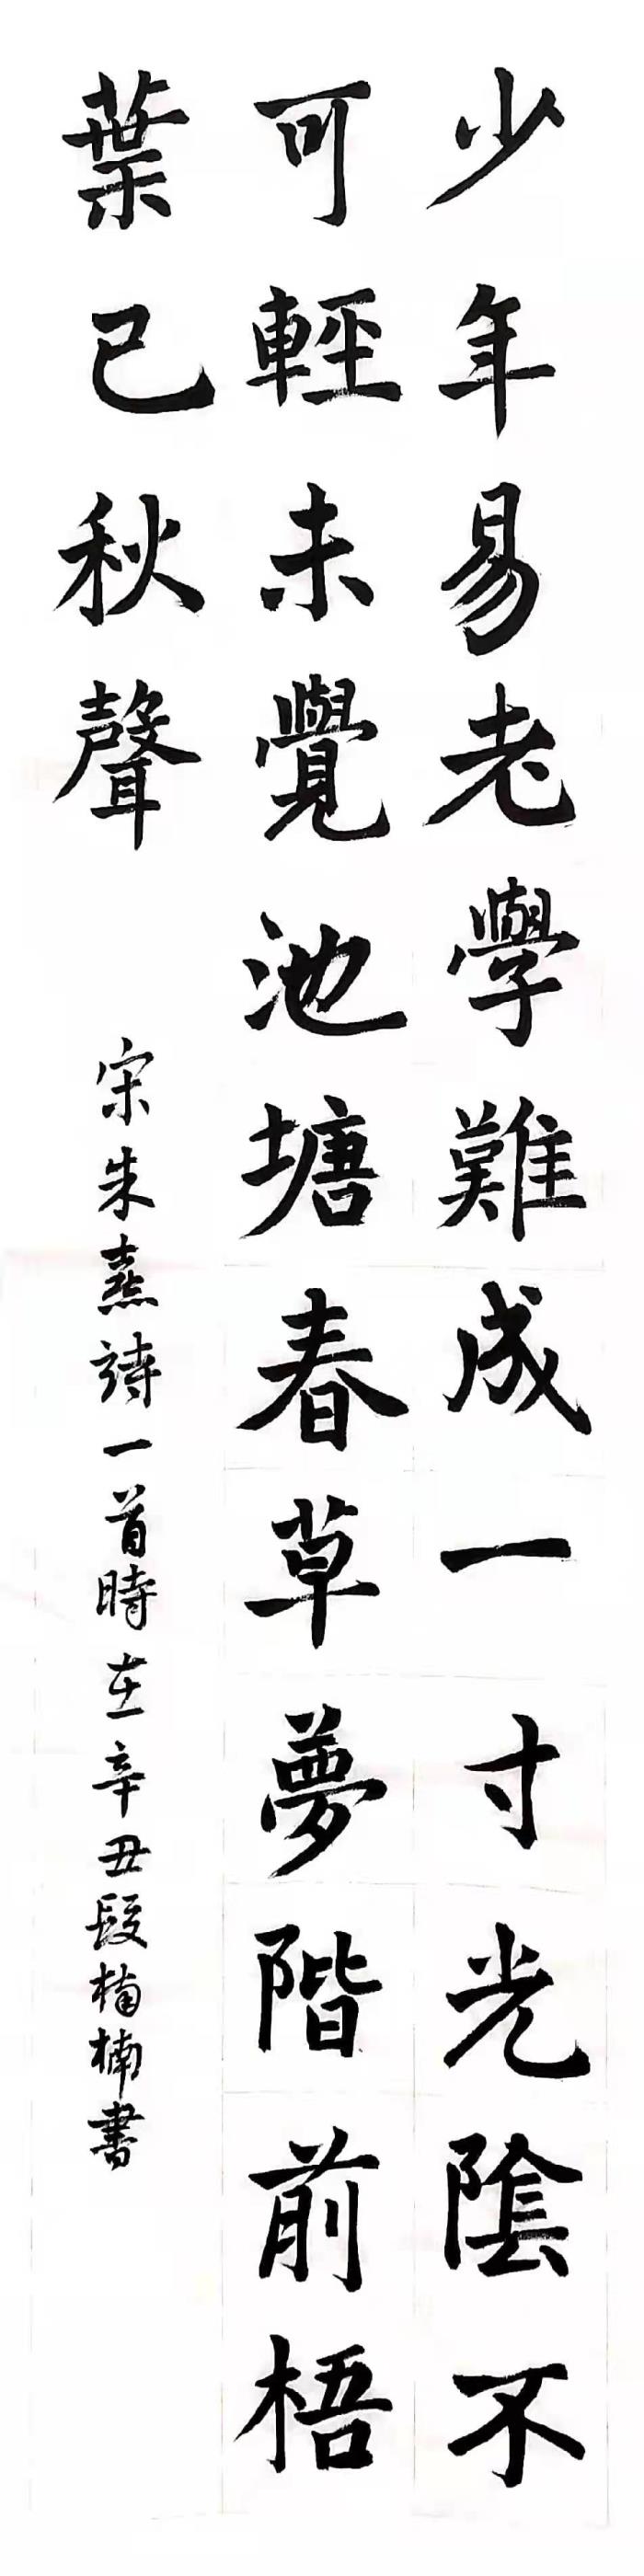 少年易老學難成一寸光陰不
可輕未覺池塘春草夢階前梧
葉已秋聲
宋朱熹詩一首時在辛丑段楠楠書